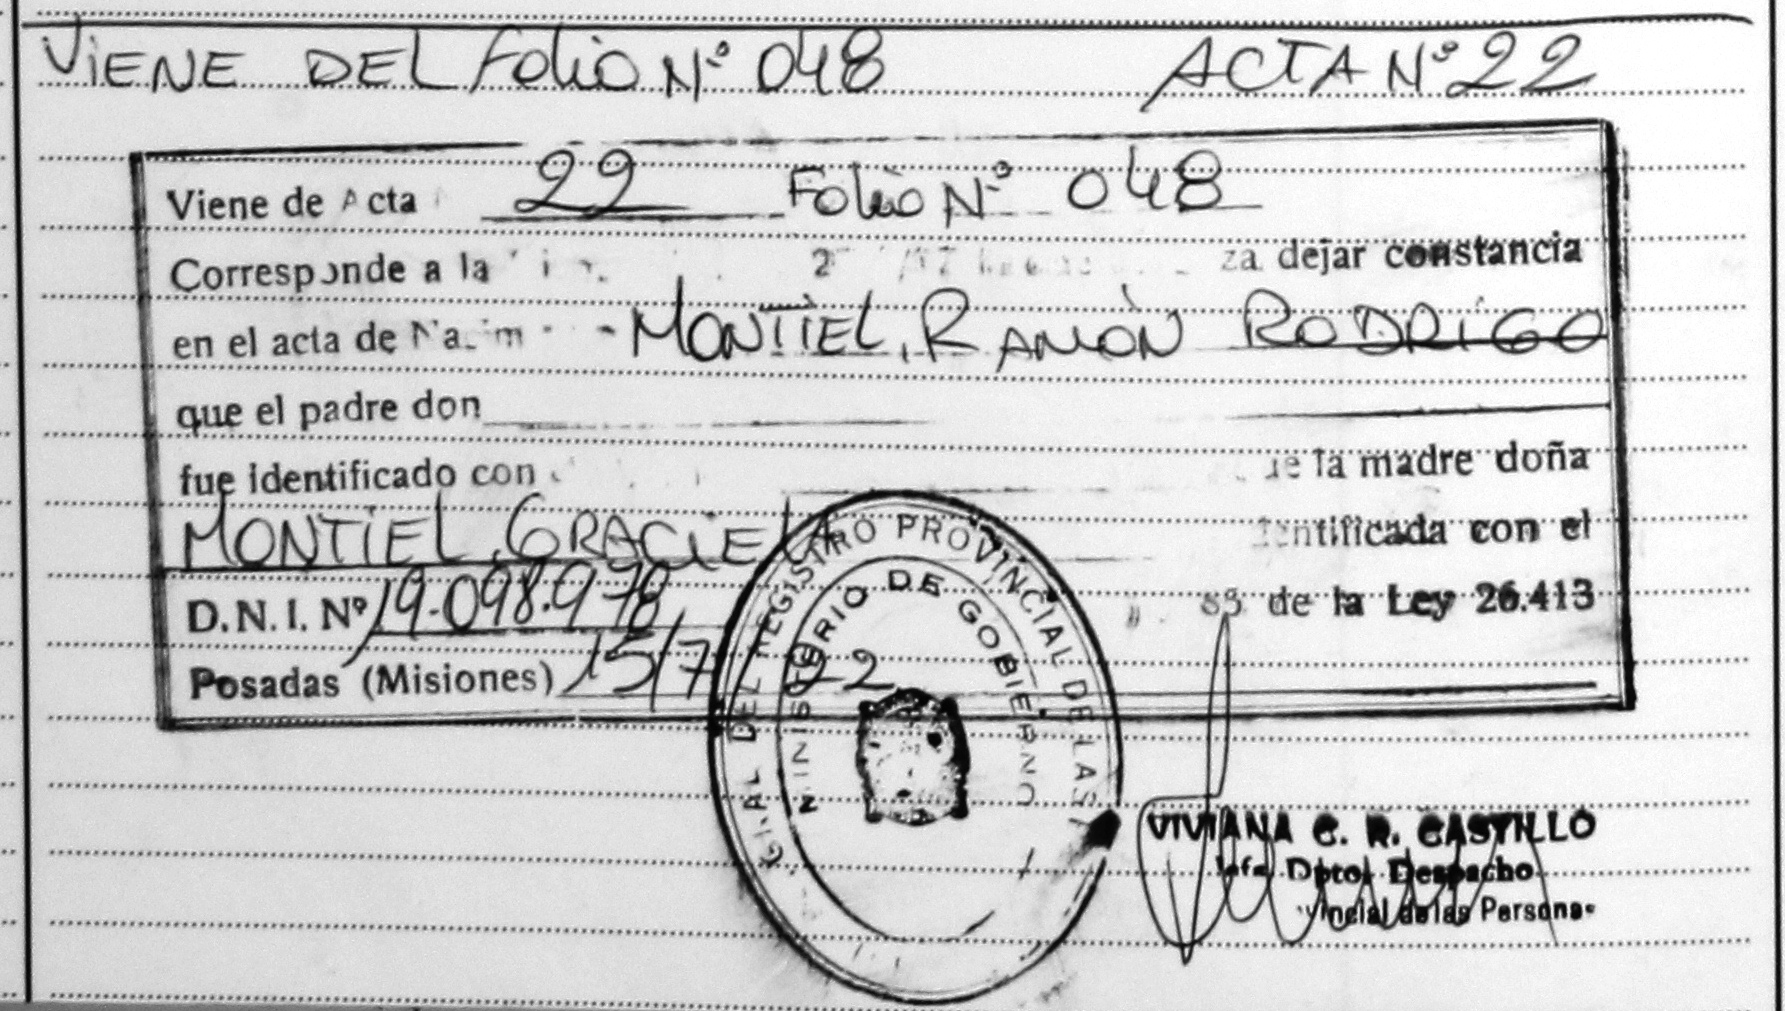 VIENE DEL Folio Nº 048 ACTA Nº 22
Viene de Acta 22 Folio Nº 048
Corresponde a la za dejar constancia
en el acta de MONTIEL, RAMÓN RODRIGO
que el padre don
fue identificado con la madre doña
MONTIEL, GRACIELA identificada con el
D.N.I. Nº 19.098.978 de la Ley 26.413
Posadas (Misiones) 15/7/22
DEL REGISTRO PROVINCIAL DE LAS
MINISTERIO DE GOBIERNO
VIVIANA C. R. CASTILLO
Dpto. Despacho
de las Personas